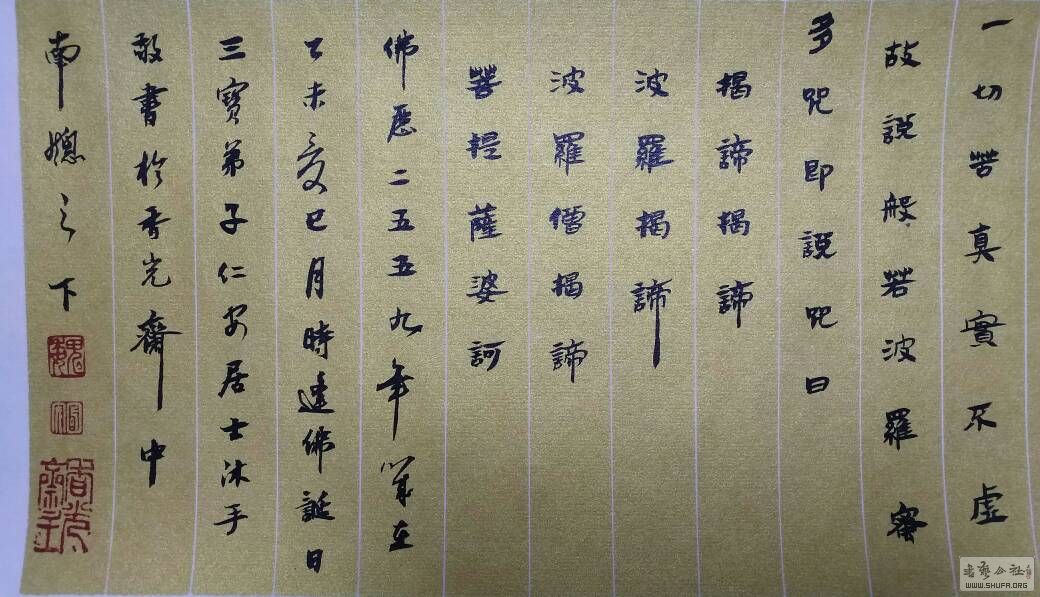 一切苦真實不虛
故說般若波羅蜜
多咒即說咒曰
揭諦揭諦
波羅揭諦
波羅僧揭諦
菩提薩婆訶
佛歷二五五九年歲在
乙未夏巳月時逢佛誕日
三寶弟子仁安居士沐手
敬書於香光齋中
南窗之下
魏
香光齋主
書藝公社
WWW.SHUFA.ORG